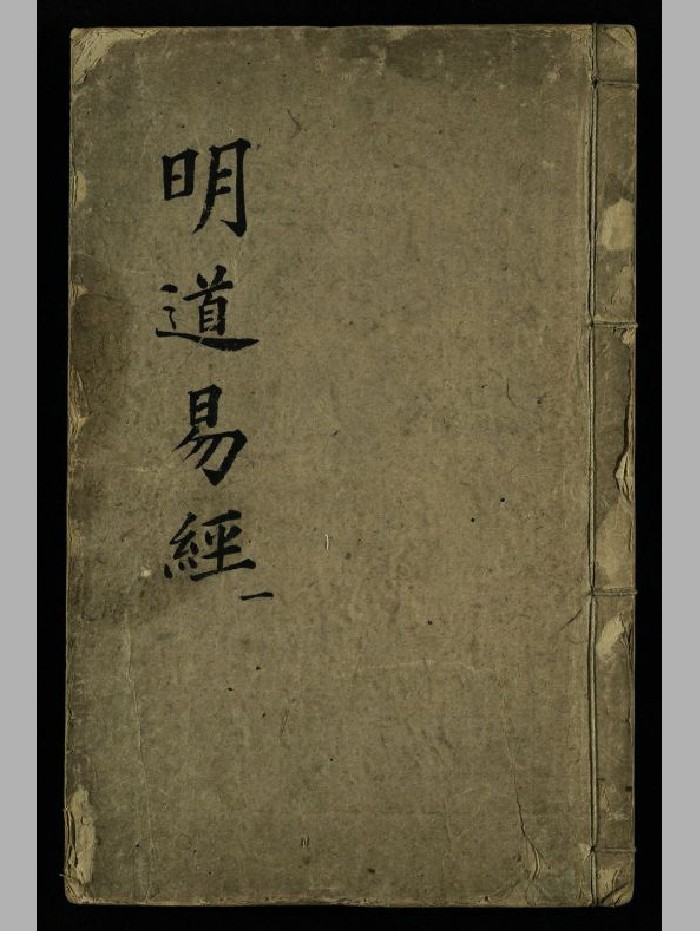 明道易經一